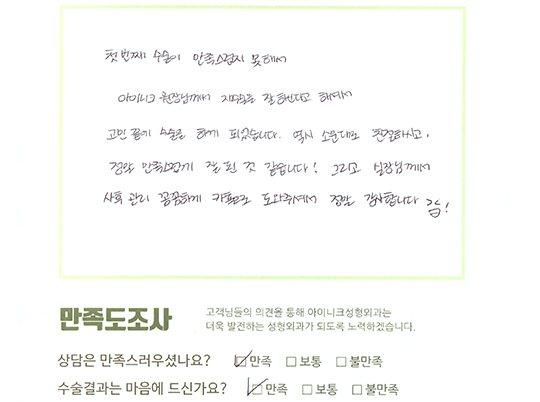 첫번째 수술이 만족스럽지 못해서
아이니크 원장님께서 재수술 잘한다고 해서
고민 끝에 수술을 하게 되었습니다. 역시 소문대로 친절하시고,
정말 만족스럽게 잘 된 것 같습니다! 그리고 실장님께서
사후 관리 꼼꼼하게 카톡으로 도와주셔서 정말 감사합니다
만족도조사
고객님들의 의견을 통해 아이니크성형외과는
더욱 발전하는 성형외과가 되도록 노력하겠습니다.
상담은 만족스러우셨나요? 만족 보통 불만족
수술결과는 마음에 드신가요? 만족 보통 불만족